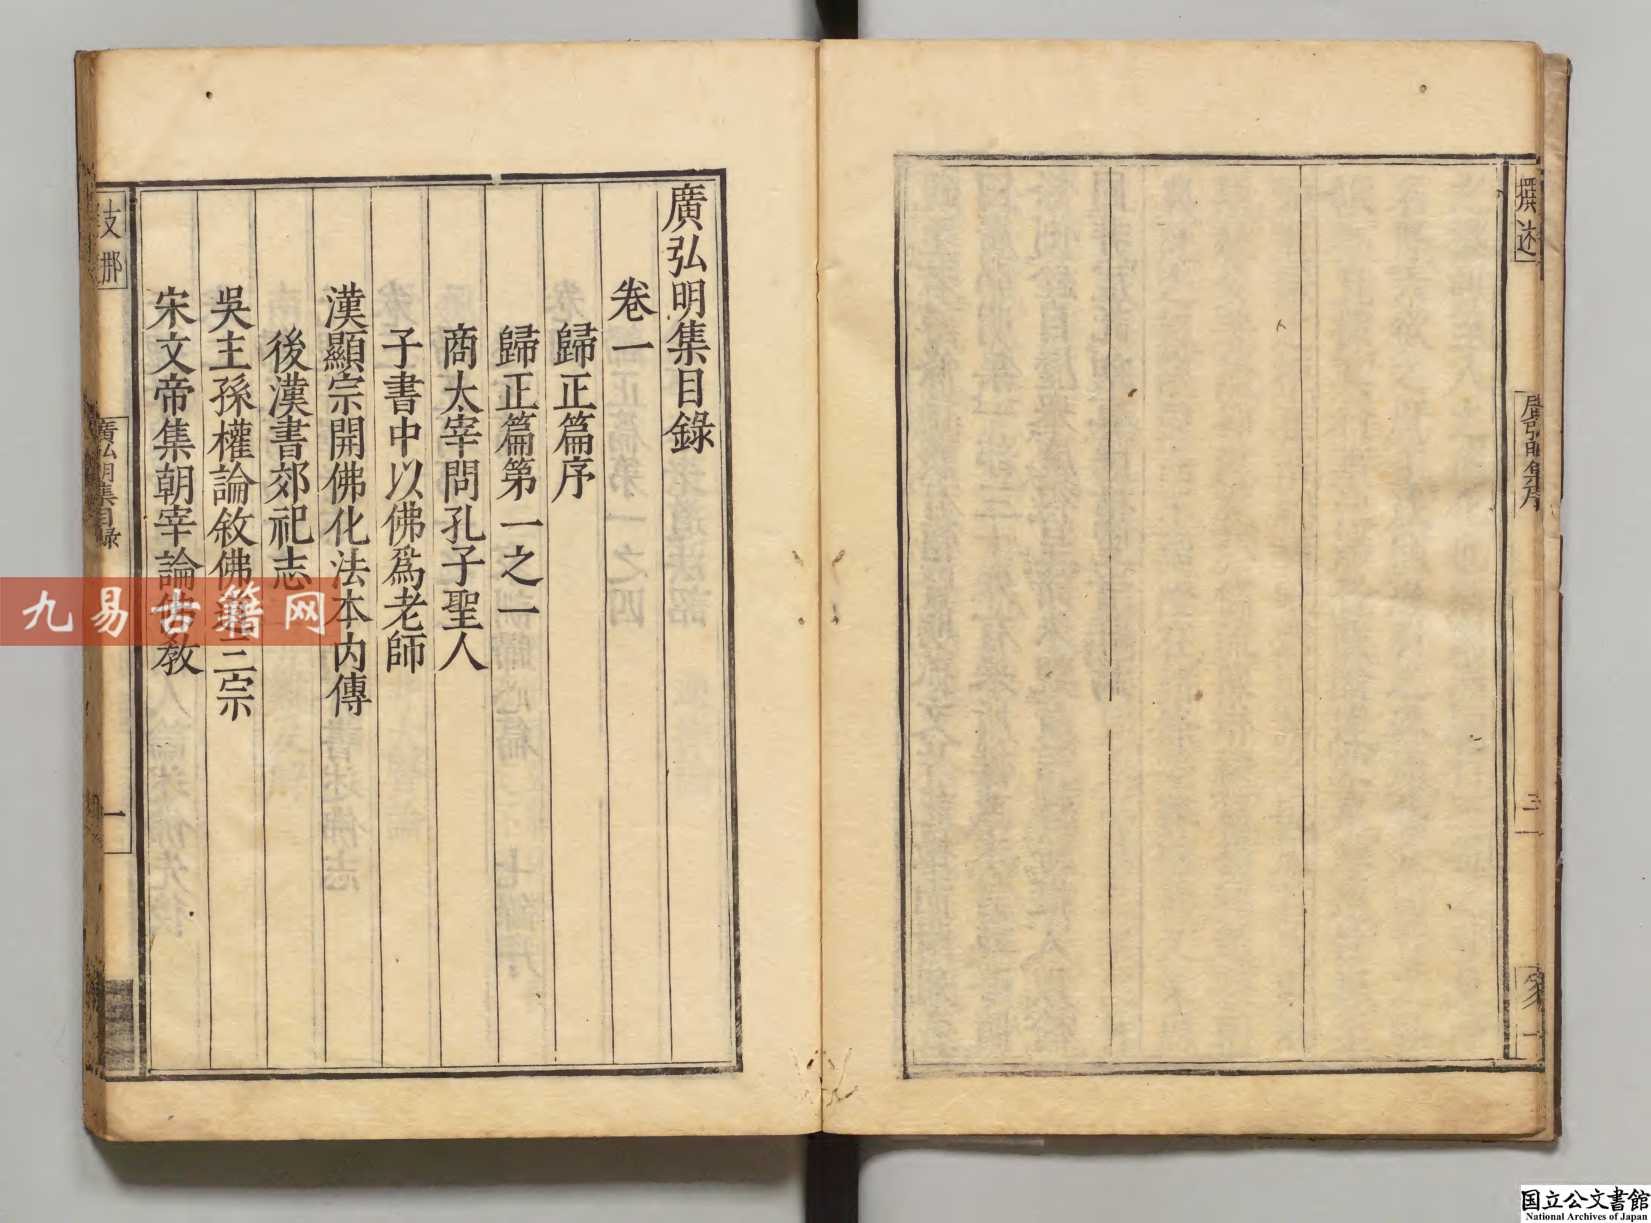 撰述
廣弘明集序
三
廣弘明集目錄
卷一
歸正篇序
歸正篇第一之一
商太宰問孔子聖人
子書中以佛爲老師
漢顯宗開佛化法本內傳
後漢書郊祀志
吳主孫權論敘佛道三宗
宋文帝集朝宰論佛教
支那
廣弘明集目錄
一
九易古籍网
国立公文書館
National Archives of Japan